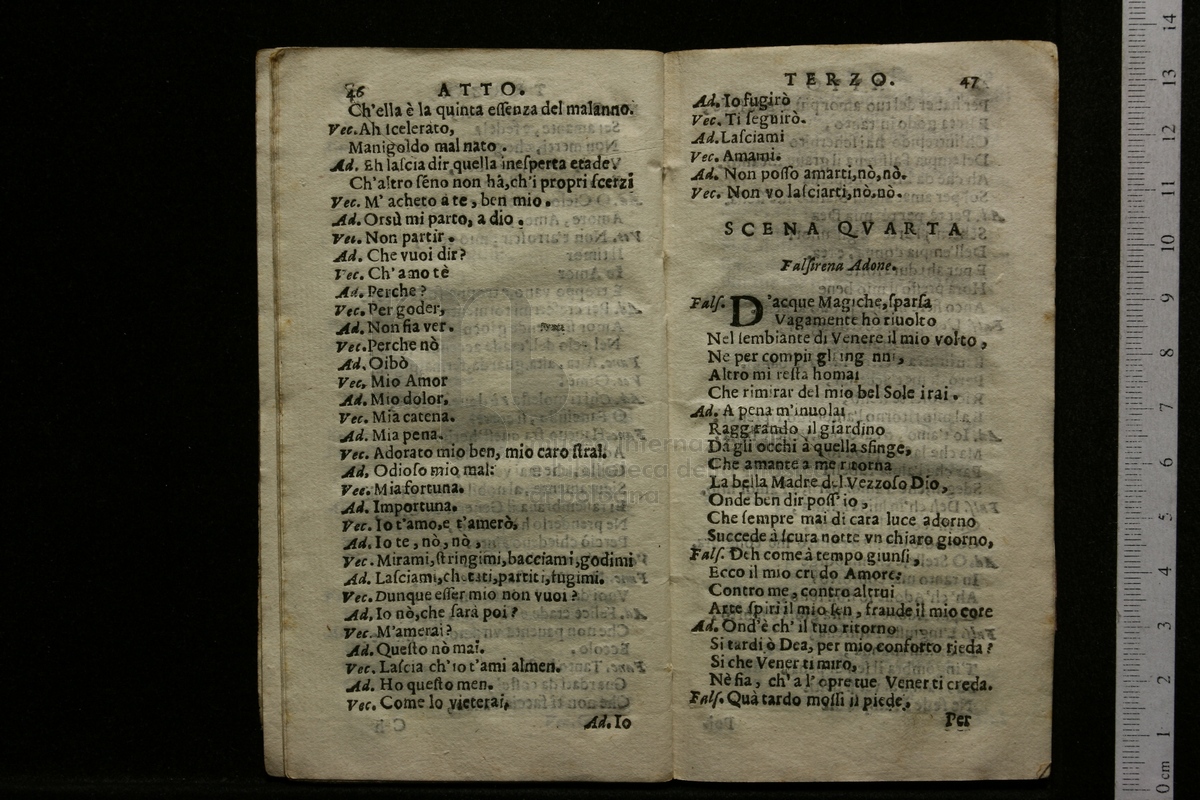 46 ATTO.
Ch'ella è la quinta eſſenza del malanno.
Vec. Ah ſcelerato,
Manigoldo mal nato.
Ad. Eh laſcia dir quella ineſperta etade
Ch'altro ſeno non hà, ch'i propri ſcerzi
Vec. M'acheto à te, ben mio.
Ad. Orsù mi parto, a dio.
Vec. Non partir.
Ad. Che vuoi dir?
Vec. Ch'amo tè
Ad. Perche?
Vec. Per goder,
Ad. Non fia ver.
Vec. Perche nò
Ad. Oibò
Vec. Mio Amor
Ad. Mio dolor,
Vec. Mia catena.
Ad. Mia pena.
Vec. Adorato mio ben, mio caro ſtral.
Ad. Odioſo mio mal:
Vec. Mia fortuna.
Ad. Importuna.
Vec. Io t'amo, e t'amerò,
Ad. Io te, nò, nò,
Vec. Mirami, ſtringimi, bacciami, godimi
Ad. Laſciami, chetati, partiti, fugimi.
Vec. Dunque eſſer mio non vuoi?
Ad. Io nò, che ſarà poi?
Vec. M'amerai?
Ad. Queſto nò mai.
Vec. Laſcia ch'io t'ami almen.
Ad. Ho queſto men.
Vec. Come lo vieterai,
Ad. Io
TERZO. 47
Ad. Io fugirò
Vec. Ti ſeguirò.
Ad. Laſciami
Vec. Amami.
Ad. Non poſſo amarti, nò, nò.
Vec. Non vo laſciarti, nò, nò.
SCENA QVARTA
Falſirena Adone.
Falſ. D'acque Magiche, ſparſa
Vagamente hò riuolto
Nel ſembiante di Venere il mio volto,
Ne per compir gl'ing nni,
Altro mi reſta homai
Che rimirar del mio bel Sole i rai.
Ad. A pena m'inuolai
Raggirando il giardino
Dà gli occhi à quella sfinge,
Che amante a me ritorna
La bella Madre del Vezzoſo Dio,
Onde ben dir poſſ'io,
Che ſempre mai di cara luce adorno
Succede à ſcura notte vn chiaro giorno,
Falſ. Deh come à tempo giunſi,
Ecco il mio crudo Amore:
Contro me, contro altrui
Arte ſpiri il mio ſen, fraude il mio core
Ad. Ond'è ch'il tuo ritorno
Si tardi ò Dea, per mio conforto rieda?
Si che Vener ti miro,
Nè fia, ch'a l'opre tue Vener ti creda.
Falſ. Quà tardo moſſi il piede,
Per